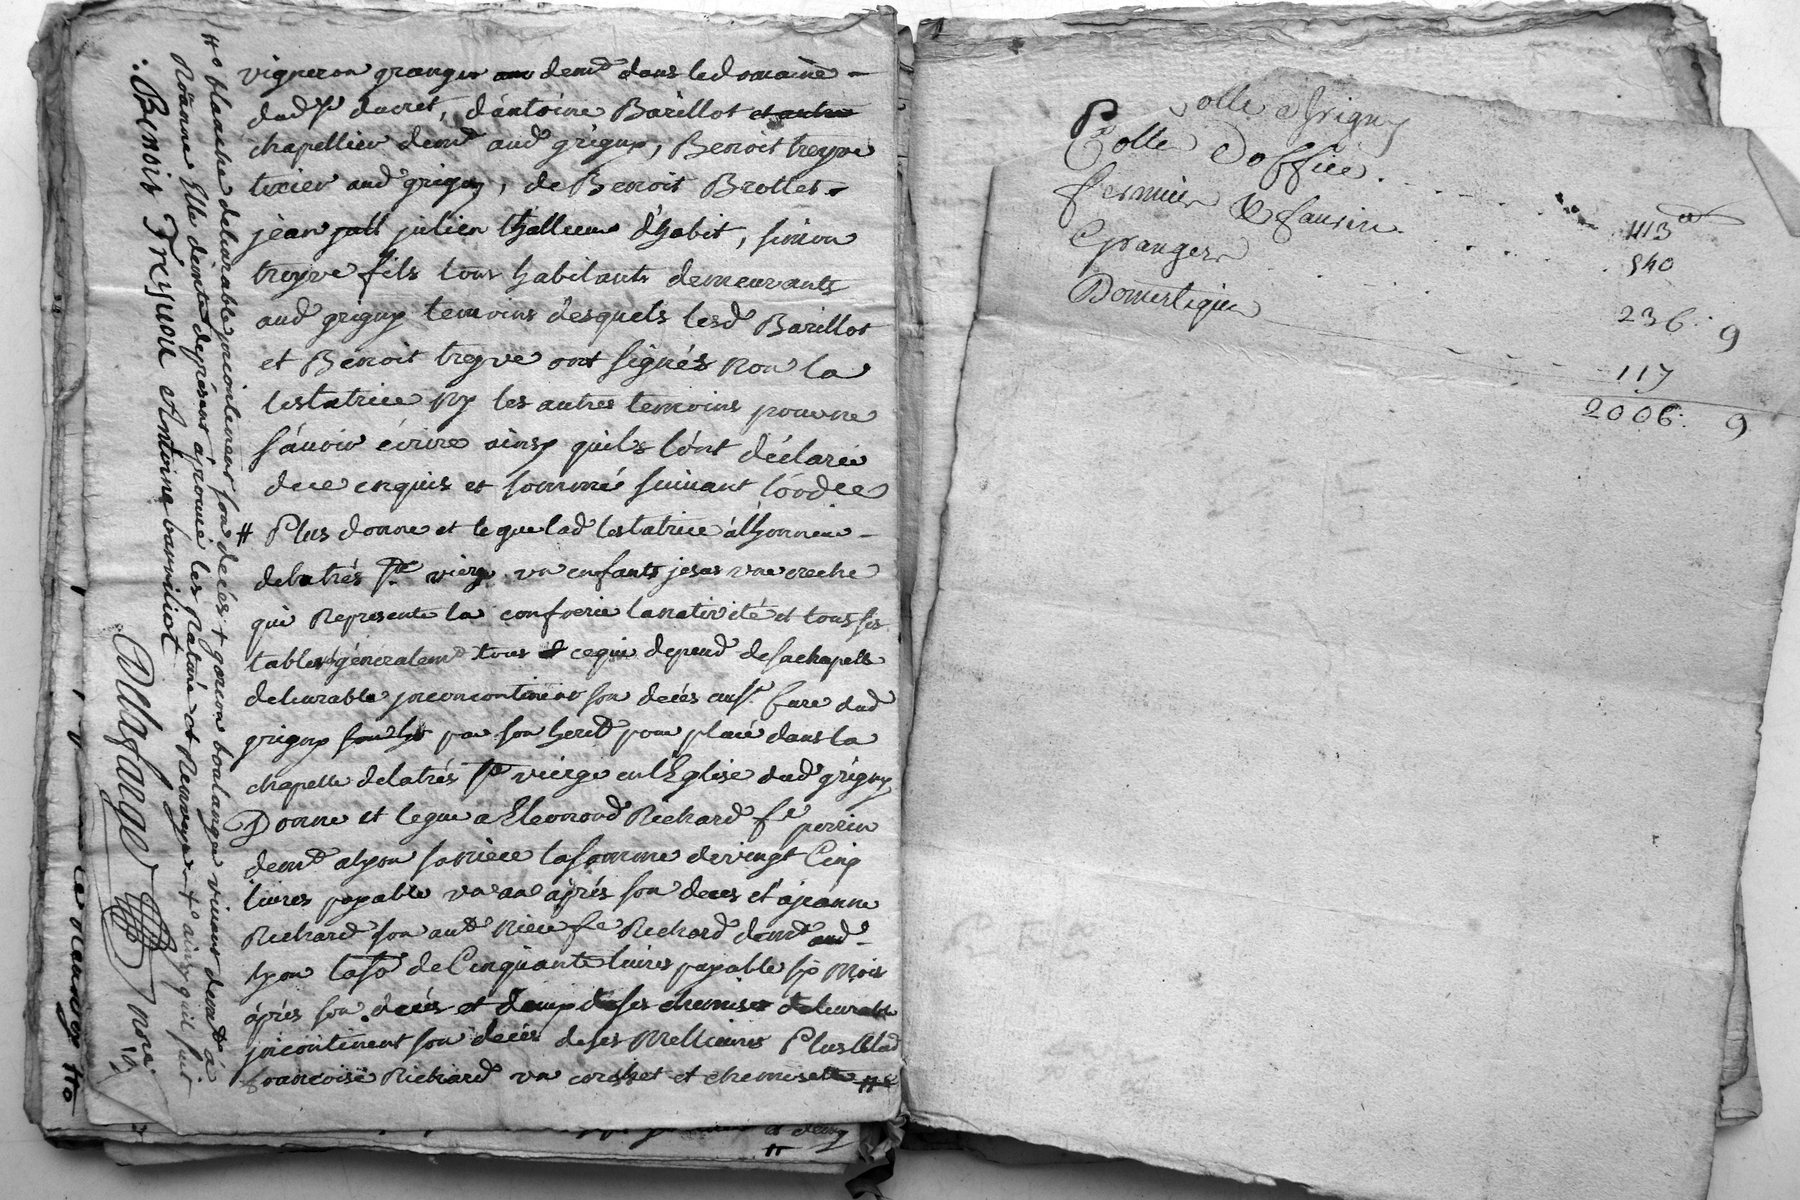 vigneron granger demt dans le domaine
dud Sr ducret, d'antoine Barillot et autre
chapellier demt aud grigny, Benoit treyve
tixier aud grigny, de Benoit Brottet
jean julien tailleur d'habit, simon
treyve fils tous habitants demeurants
aud grigny temoins desquels lesd Barillot
et Benoit treyve ont signés non la
testatrice ny les autres temoins pour ne
sávoir écrire ainsy quils lónt déclaré
de ce enquis et sommé suivant
# Plus donne et legue lad testatrice á lhonneur
de la trés Ste vierge un enfants jesus une creche
qui Represente la confrerie la nativité et tous ses
tables généralemt tous cequi depend de sa chapelle
delivrable incontinent son decés Cure dud
grigny par son herit pour placé dans la
chapelle de la trés Ste vierge en l'Eglise dud grigny
Donne et legue a Richard fe perrin
demt a lyon sa niéce la somme de vingt Cinq
livres payable un an áprés son deces et á jeanne
Richard son aut Niéce fe Richard demt aud
lyon la so de Cinquante livres payable six Mois
áprés son decés et de ses chemises delivrable
incontinent son decés de ses Mellieures Plus á lad
francoise Richard un corset et chemisette #
blanche delivrable incontinent son decés + garcon boulanger demt á
Roänne Elle demt de présent áprouvé les Rature et Renvoye + ainsy quil suit
: Benoit Treyvoe Antoine barriliot
Delafarge Nore
Colle a Grigny
Colle d'office. 1113 tt
fermier de 540
Grangers 236: 9
Domestiques 117
2006: 9